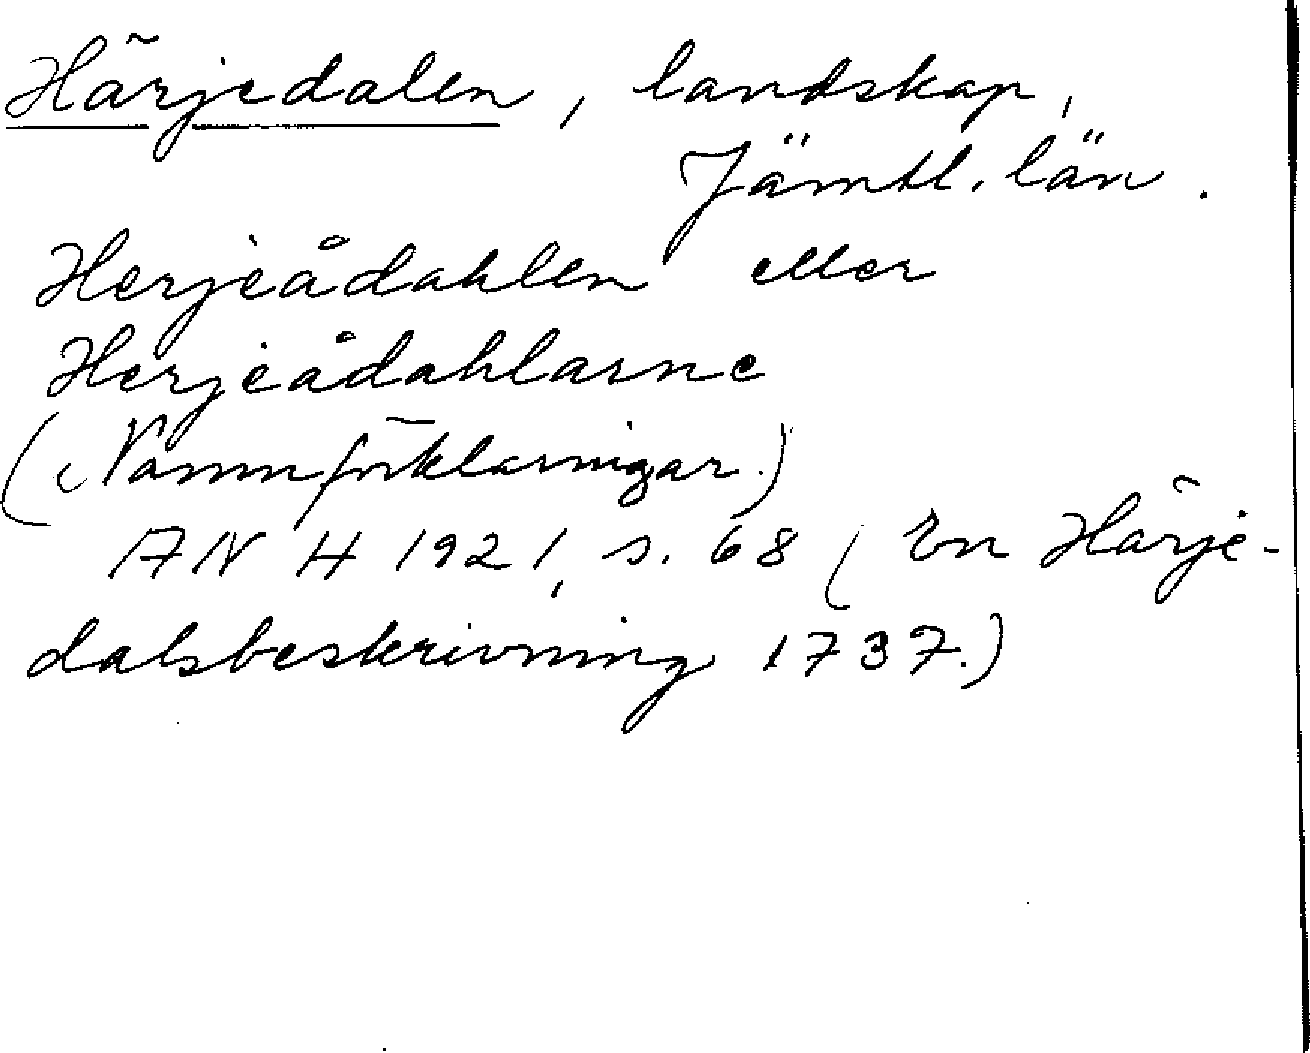 Härjedalen, landskap,
Jämtl. län.
Herjeådahlen eller
Herjeådahlarne
(Namnförklaringar.)
ANH 1921, s. 68 (En Härje-
dalsbeskrivning 1737.)